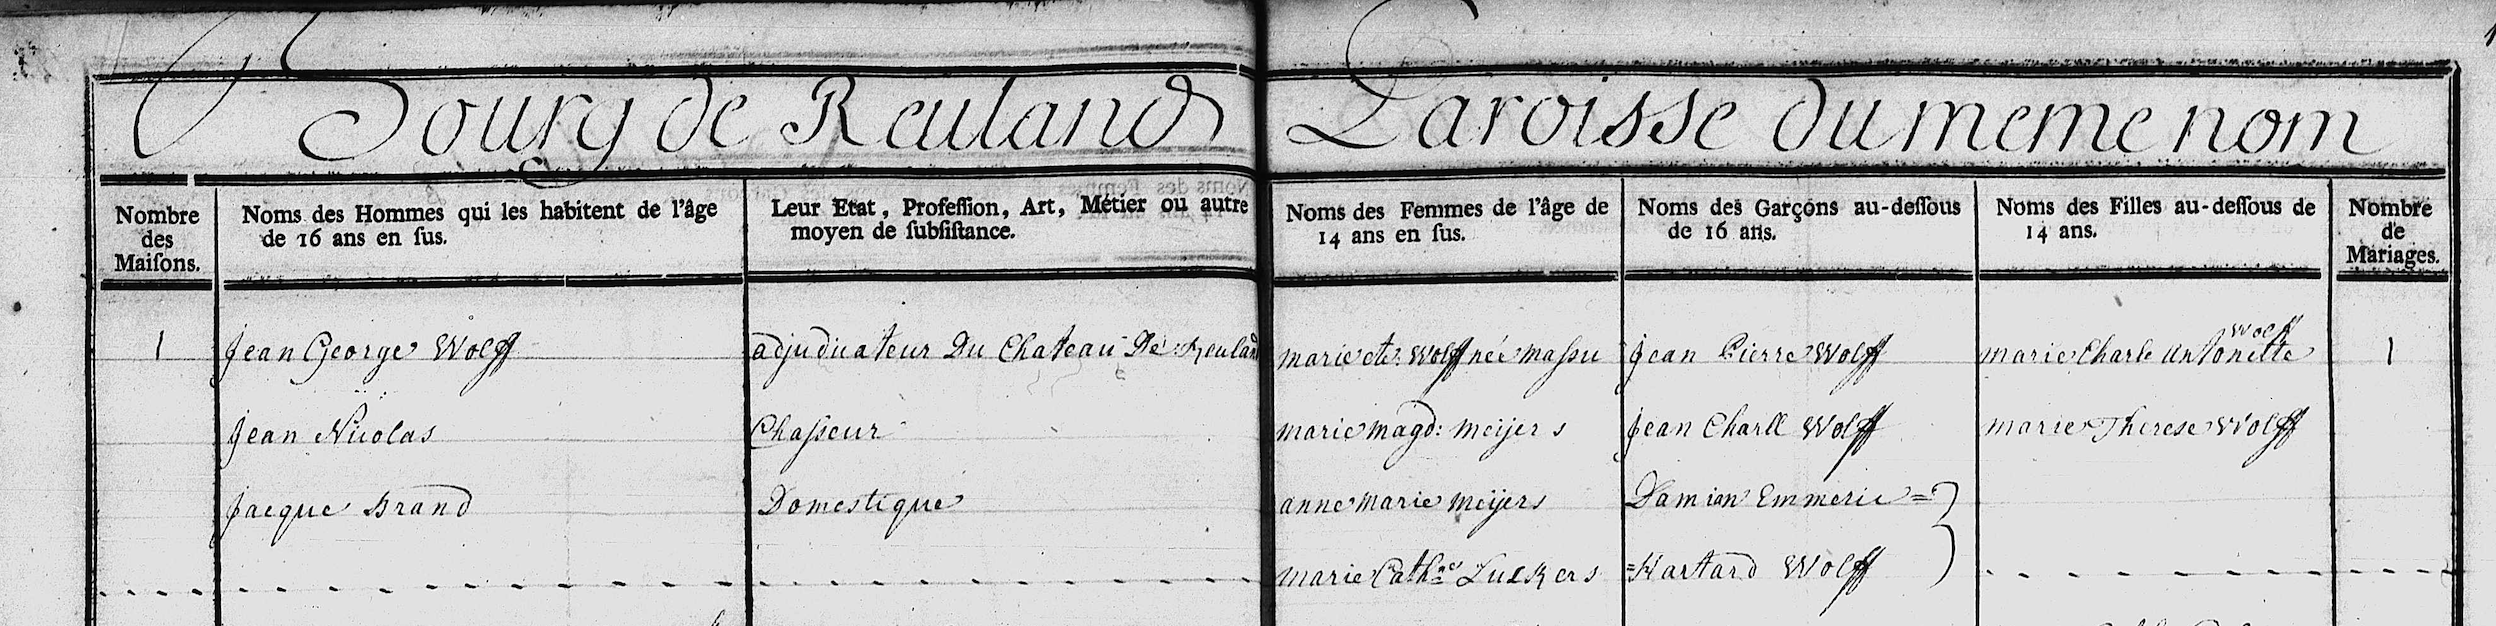 Bourg de Reuland Paroisse du meme nom
Nombre des Maiſons.
Noms des Hommes qui les habitent de l'âge de 16 ans en ſus.
Leur Etat, Profeſſion, Art, Métier ou autre moyen de ſubſiſtance.
Noms des Femmes de l'âge de 14 ans en ſus.
Noms des Garçons au-deſſous de 16 ans.
Noms des Filles au-deſſous de 14 ans.
Nombre de Mariages.
1 Jean George Wolff adjudicateur Du Chateau De Reuland marie cte: Wolff née Maſsu Jean Pierre Wolff marie Charle Antonette Wolff 1
Jean Nicolas Chaſseur marie magd: meijers Jean Charll Wolff marie Therese Wolff
Jacque Brand Domestique anne marie meijers Damian Emmeric =
marie Cathne Luckers =Hartard Wolff